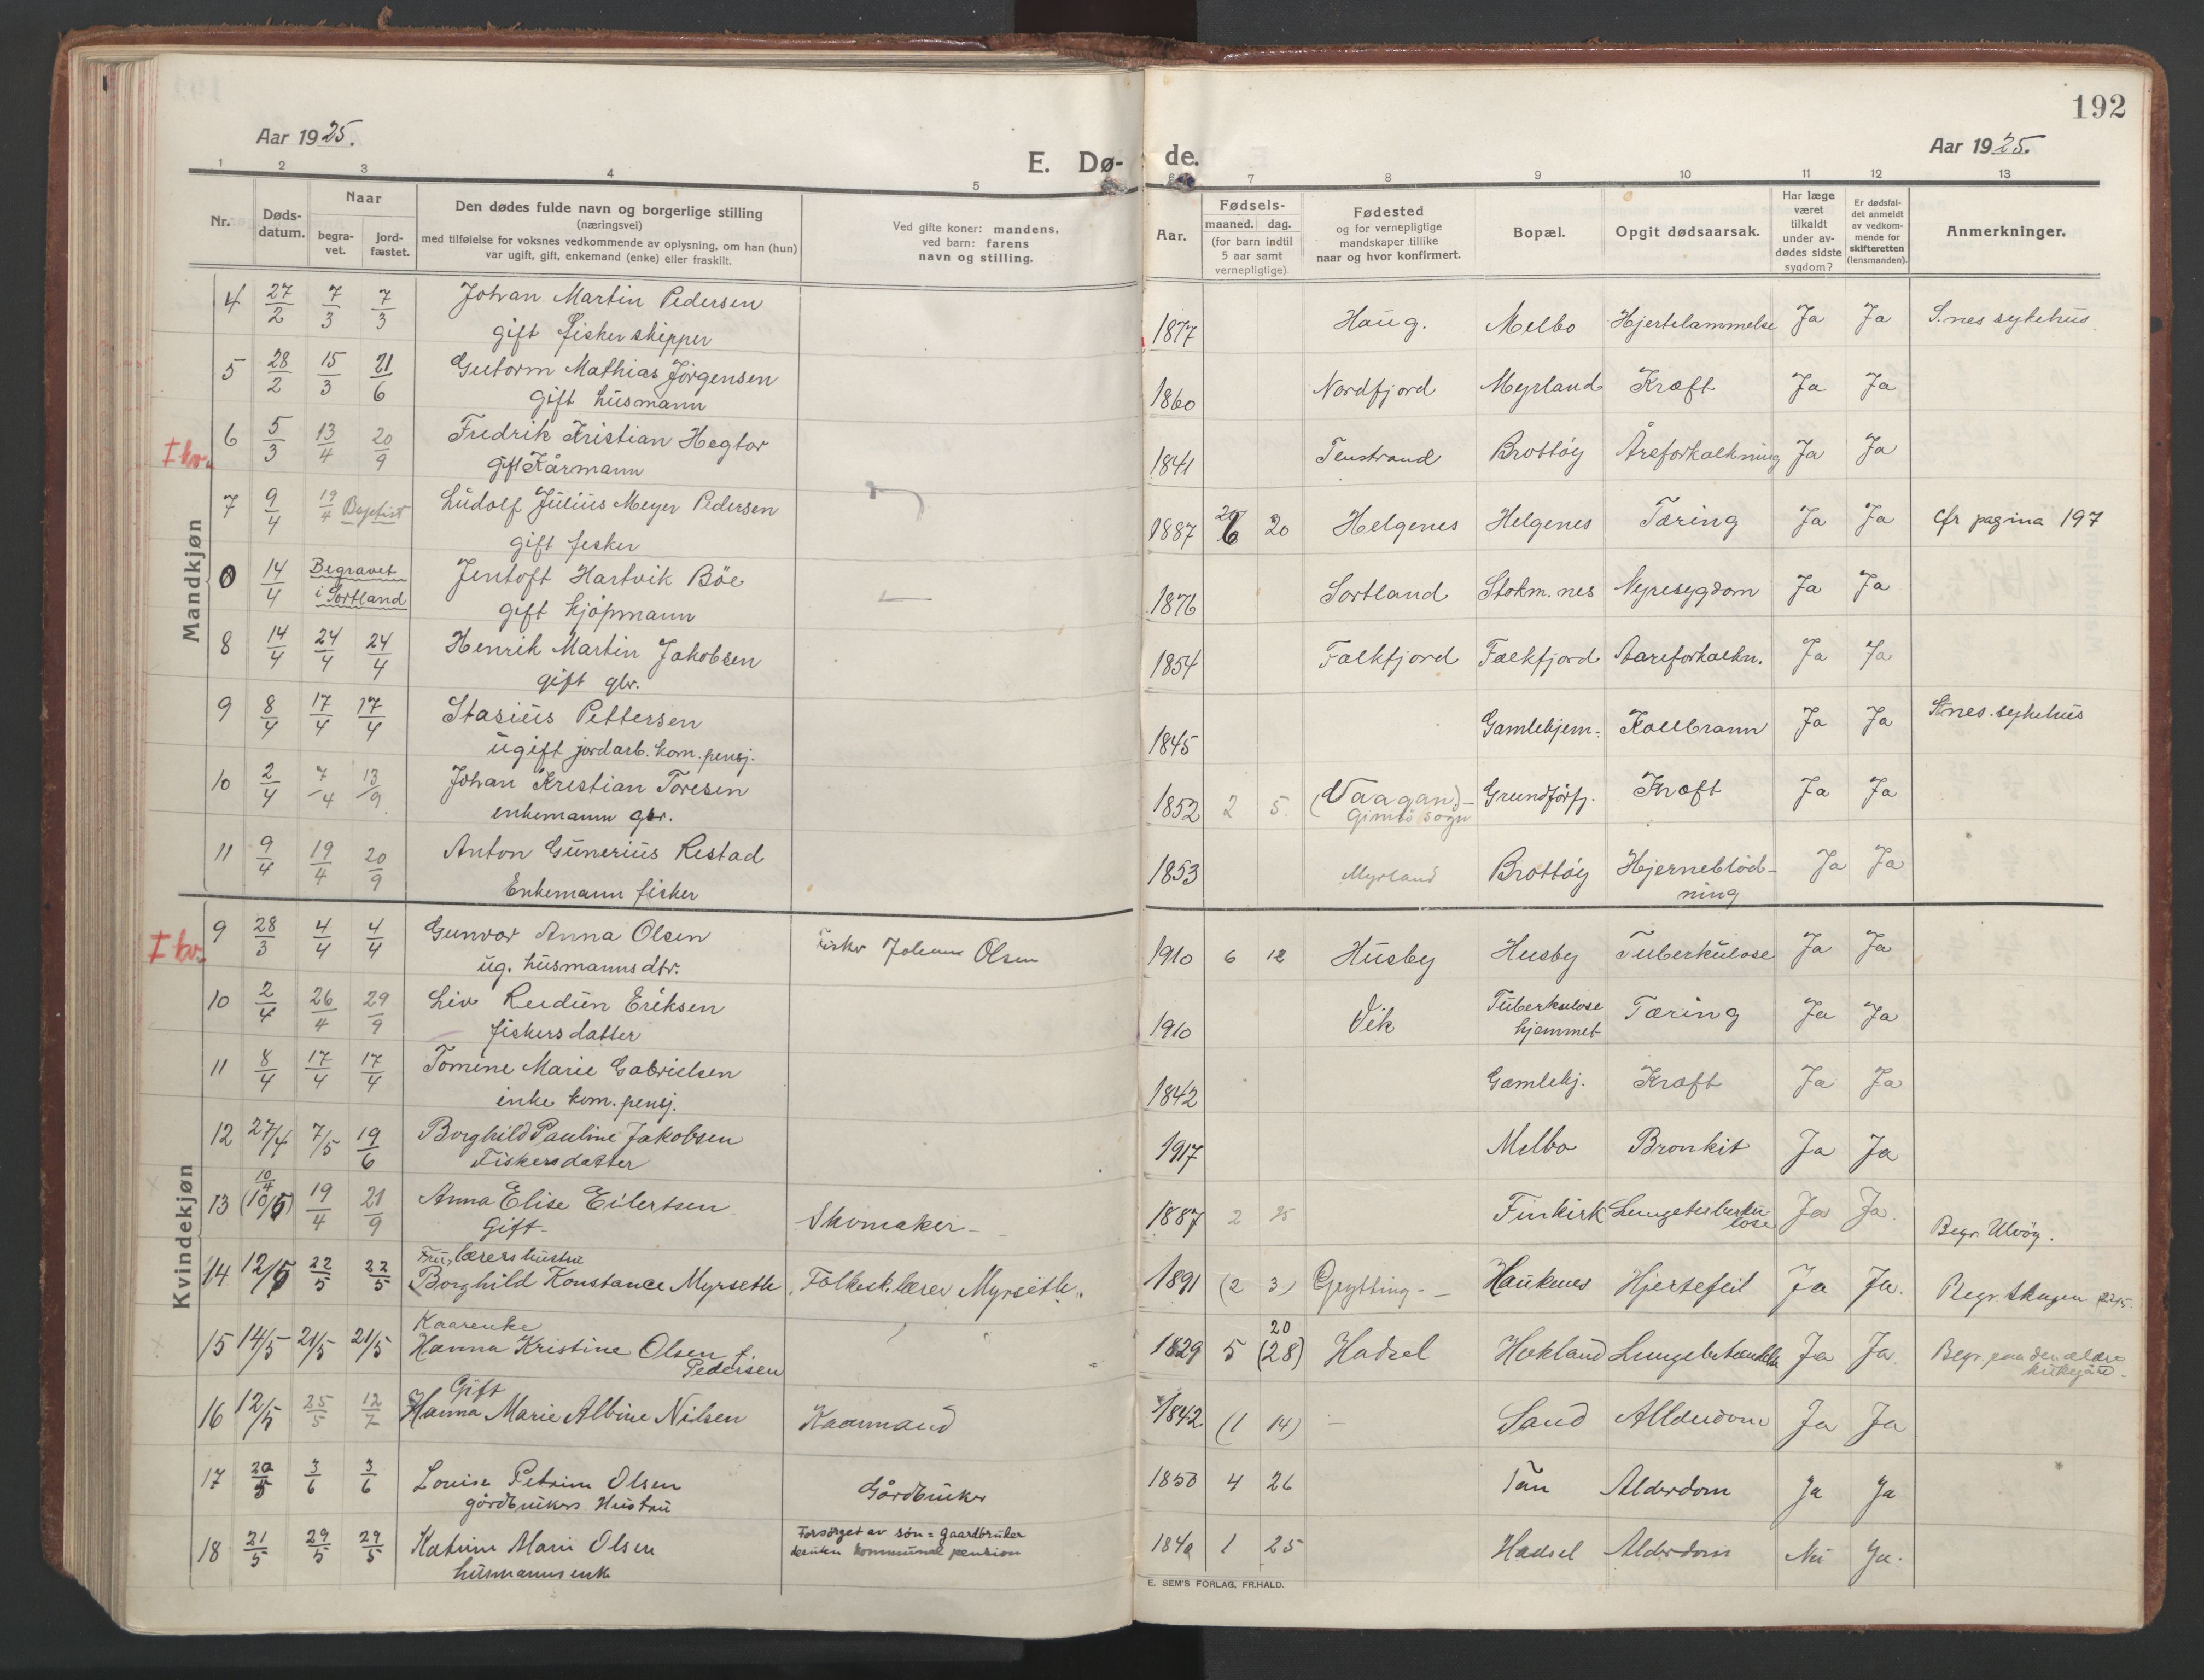 192
Aar 1925.
E. Dø-
de.
Aar 1925.
1 2 3 4 5 6 7 8 9 10 11 12 13
Nr.
Døds-
datum.
Naar
begra-
vet.
jord-
fæstet.
Den dødes fulde navn og borgerlige stilling
(næringsvei)
med tilføielse for voksnes vedkommende av oplysning, om han (hun)
var ugift, gift, enkemand (enke) eller fraskilt.
Ved gifte koner: mandens,
ved barn: farens
navn og stilling.
Aar.
Fødsels-
maaned. dag.
(for barn indtil
5 aar samt
vernepligtige).
Fødested
og for vernepligtige
mandskaper tillike
naar og hvor konfirmert.
Bopæl.
Opgit dødsaarsak.
Har læge
været
tilkaldt
under av-
dødes sidste
sygdom?
Er dødsfal-
det anmeldt
av vedkom-
mende for
skifteretten
(lensmanden).
Anmerkninger.
Mandkjøn
4 27/2 7/3 7/3 Johan Martin Pedersen
gift fiskerskipper
1877 Haug. Melbo Hjertelammelse Ja Ja S.nes sykehus
5 28/2 15/3 21/6 Gutorm Mathias Jörgensen
gift husmann
1860 Nordfjord Myrland Kræft Ja Ja
I kv.
6 5/3 13/4 20/9 Fredrik Kristian Hegtor
gift Kårmann
1841 Tenstrand Brottøy Åreforkalkning Ja Ja
7 9/4 19/4 Baptist Ludolf Julius Meyer Pedersen
gift fisker
1887 6 20 Helgenes Helgenes Tæring Ja Ja cfr pagina 197
0 14/4 Begravet
i Sortland
Jentoft Hartvik Böe
gift kjöpmann
1876 Sortland Stokm.nes Nyresygdom Ja Ja
8 14/4 24/4 24/4 Henrik Martin Jakobsen
gift gbr.
1854 Falkfjord Falkfjord Aareforkalkn. Ja Ja
9 8/4 17/4 17/4 Stasius Pettersen
ugift jordarb. kom. pensj.
1845 Gamlehjem. Kollbrann Ja Ja S.nes. sykehus
10 2/4 7/4 13/9 Johan Kristian Toresen
enkemann gbr.
1852 2 5. (Vaagan)-
Gimsö sogn
Grundförfj. Kræft Ja Ja
11 9/4 19/4 20/9 Anton Gunerius Restad
Enkemann fisker
1853 Myrland Brottøy Hjerneblöd-
ning
Ja Ja
Kvindekjøn
I kv.
9 28/3 4/4 4/4 Gunvor Anna Olsen
ug. husmannsdtr.
Fisker Johan Olsen
1910 6 12 Husby Husby Tuberkulose Ja Ja
10 2/4 26/4 29/9 Liv Reidun Eriksen
fiskersdatter
1910 Vik Tuberkulose
hjemmet
Tæring Ja Ja
11 8/4 17/4 17/4 Tomine Marie Gabrielsen
enke kom. pensj.
1842 Gamlehj. Kræft Ja Ja
12 27/4 7/5 19/6 Borghild Pauline Jakobsen
Fiskersdatter
1917 Melbo Bronkit Ja Ja
10/4
13 (10/5) 19/4 21/9 Anna Elise Eilertsen
Gift-
Skomaker-
1887 2 25 Finkirk Lungetuberku
lose
Ja Ja.
Begr. Ulvöy.
14 12/5 22/5 22/5 Fru, lærers hustru
Borghild Konstance Myrseth
Folkesk.lærer Myrseth.
1891 (2 3) Grytting- Haukenes Hjertefeil Ja Ja. Begr. Skagen 22/5.
15 14/5 21/5 21/5 Kaarenke
Hanna Kristine Olsen f.
Pedersen
20
1829 5 (28) Hadsel Hokland Lungebetændelse Ja Ja. Begr. paa den ældre
kirkegård.
16 12/5 25/5 12/7 Gift
Hanna Marie Albine Nilsen
Kaarmand
1842 (1 14) - Sand Allderdom Ja Ja
17 20/5 3/6 3/6 Louise Petrine Olsen
gårdbrukers Hustru
Gårdbruker
1850 4 26 Alderdom Ja Ja
18 21/5 29/5 29/5 Katrine Marie Olsen
husmannsenke
Forsørget av søn = gaardbruker
desuten kommunal pension
1840 1 25 Hadsel Alderdom Nei Ja.
E. SEM'S FORLAG, FR.HALD.